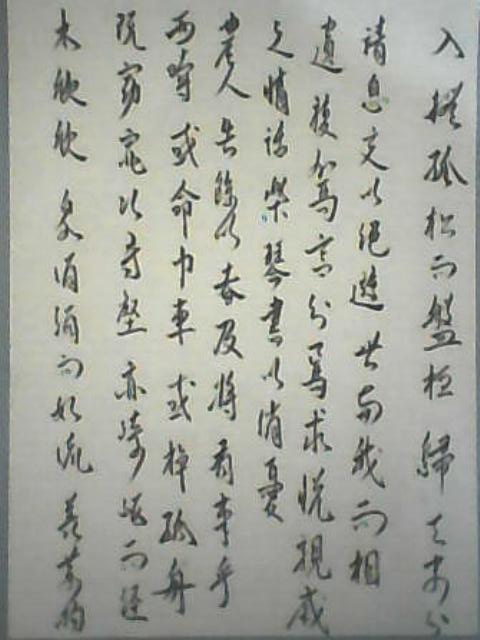 入撫孤松而盤桓歸去來兮
請息交以絕遊世與我而相
遺復駕言兮焉求悅親戚
之情話樂琴書以消憂
農人告餘以春及將有事乎
西疇或命巾車或棹孤舟
既窈窕以尋壑亦崎嶇而經
木欣欣泉涓涓而始流善萬物